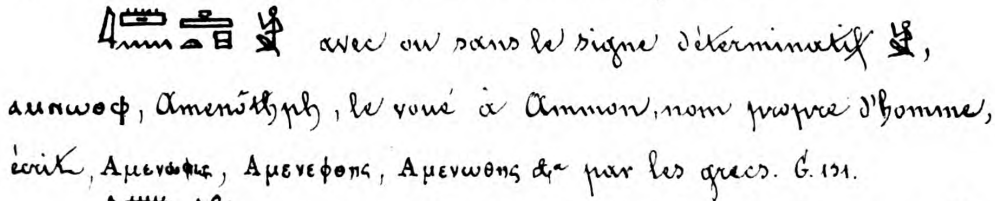 𓇋𓏠𓈖𓊵𓏏𓊪𓀀 avec ou sans le signe déterminatif 𓀀,
ⲁⲙⲛⲱⲑⲫ, Amenôthph, le voué à Ammon, nom propre d'homme,
écrit, Αμενωφις, Αμενεφθης, Αμενωθης &a par les grecs. G. 131.